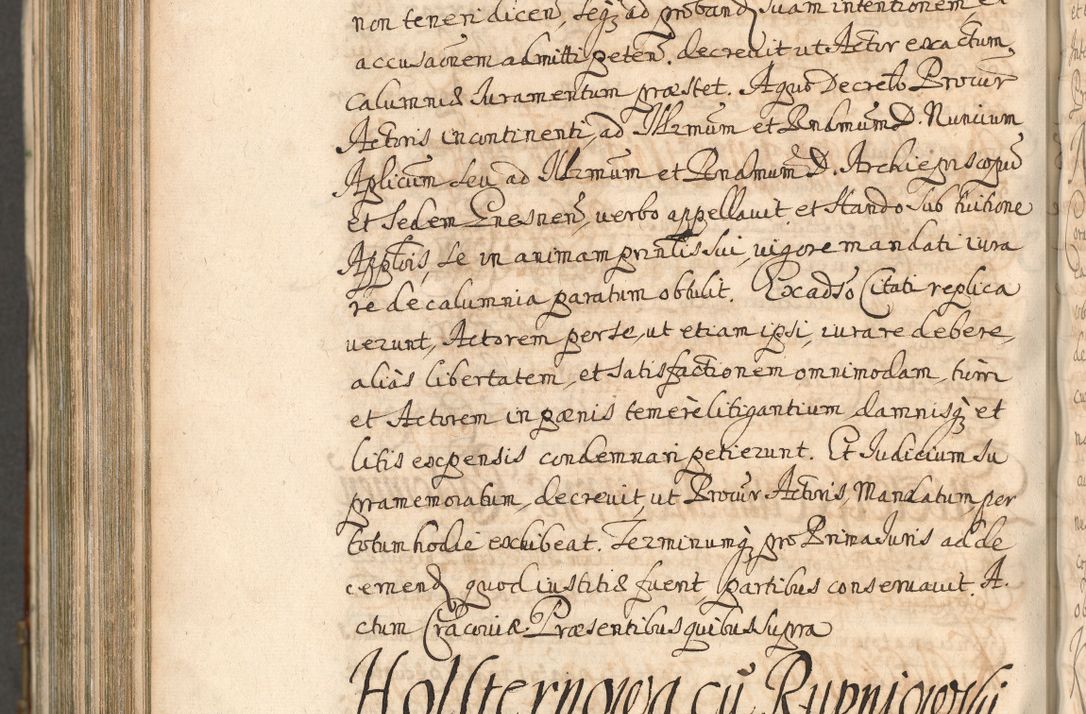 non teneri dicen, seq3 ad proband suam intentionem et
accusaonem admitti peten. decreuit ut Actor exactum,
calumniæ Iuramentum præstet. A quo Decreto Procur
Actoris incontinenti, ad Illrmum et Rndmum D. Nuncium
Aplicum seu ad Illrmum et Rndmum D. Archiepiscopu
et sedem Gnesnen, uerbo appellauit, et stando sub tuitione
Applois, se in animam prntis sui, uigore mandati iura
re de calumnia paratum obtulit. Exadso Citati replica
uerunt, Actorem per se, ut etiam ipsi, iurare debere,
aliàs libertatem, et satisfactionem omnimodam, tum
et Actorem in pænis temerè litigantium damnisq3 et
litis expensis condemnari petierunt. Et Iudicium su
pramemoratum, decreuit, ut Procur Actoris, Mandatum, per
totum hodie exhibeat. Terminumq3 pro Prima Iuris ad de
cernend quod iustitiæ fuerit, partibus conseruauit. A-
ctum Cracouiæ. Præsentibus quibus supra
Hollsternowa cu Rupniowski